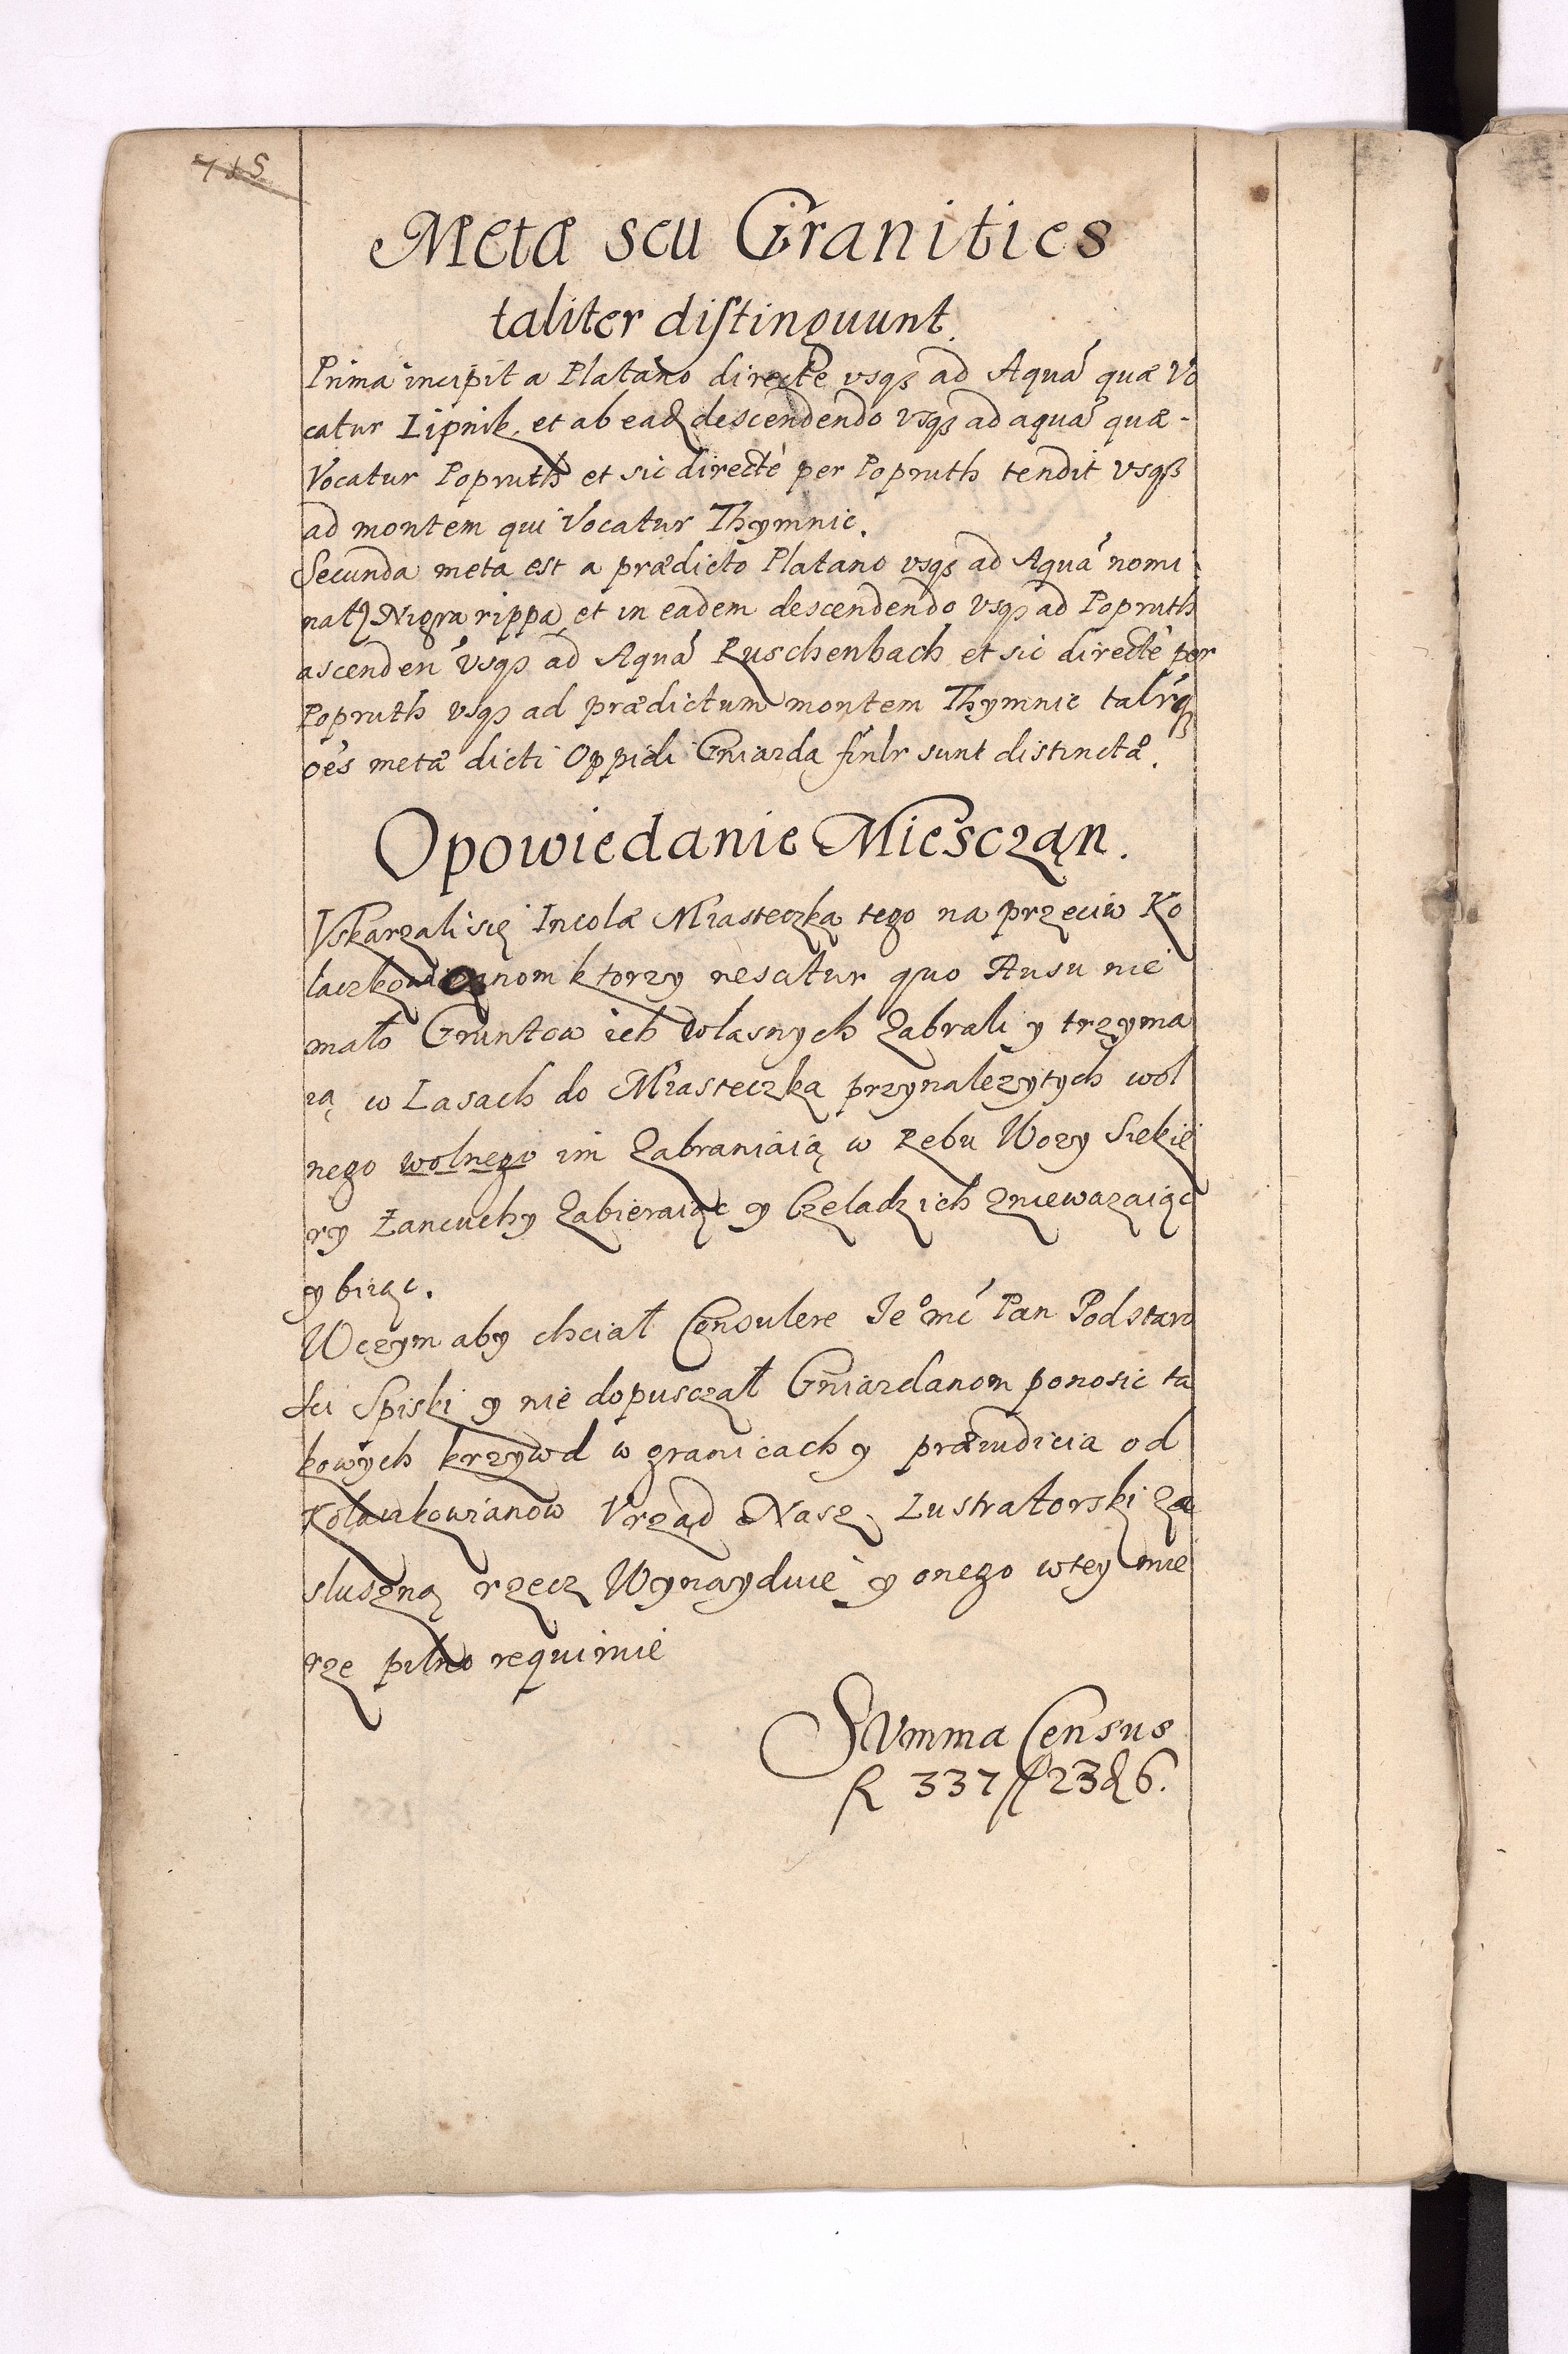 715
Meta seu Granities
taliter distinguunt.
Prima incipit a Platano directe vsqȝ ad Aquā quæ Vo
catur Lipnik, et ab eadꝫ descendendo vsqȝ ad aquā quæ-
Vocatur Popruth et sic directè per Popruth tendit vsqȝ
ad montem qui Vocatur Thymnic.
Secunda meta est a prædicto Platano vsqȝ ad Aquā nomi:
natꝫ Nigra rippa, et in eadem descendendo vsqȝ ad Popruth
ascenden̄ vsqȝ ad Aquā Ruschenbach et sic directè per
Popruth vsqȝ ad prædictum montem Thymnic talr̄qȝ
oēs metæ dicti Oppidi Gniazda sīnlr sunt distinctæ.
Opowiedanie Mieścząn.
Vskarzali się Incolæ Miasteczka tego na przeciw Ko
laczkowianom ktorzy nescitur quo Ausu nie
mało Gruntow ich wlasnych Zabrali y trzyma
ią w Lasach do Miasteczka przynalezytych wol
nego wolnego im Zabraniaią w Rębu Wozy Siekie
ry Łancuchy Zabieraiąc y Czeladz ich zniewazaiąc
y biiąc.
W czym aby chciał Consulere Ieº mć Pan Podstaro
sci Spiski y nie dopusczał Gniazdanom ponosic ta
kowych krzywd w granicach y præiudicia od
Kolaczkowianow Vrząd Nasz Lustratorski za
sluszną rzecz Wynayduie y onego w tey mie
rze pilno requirnie
Summa Census
fl 337 ss 23 d 6.